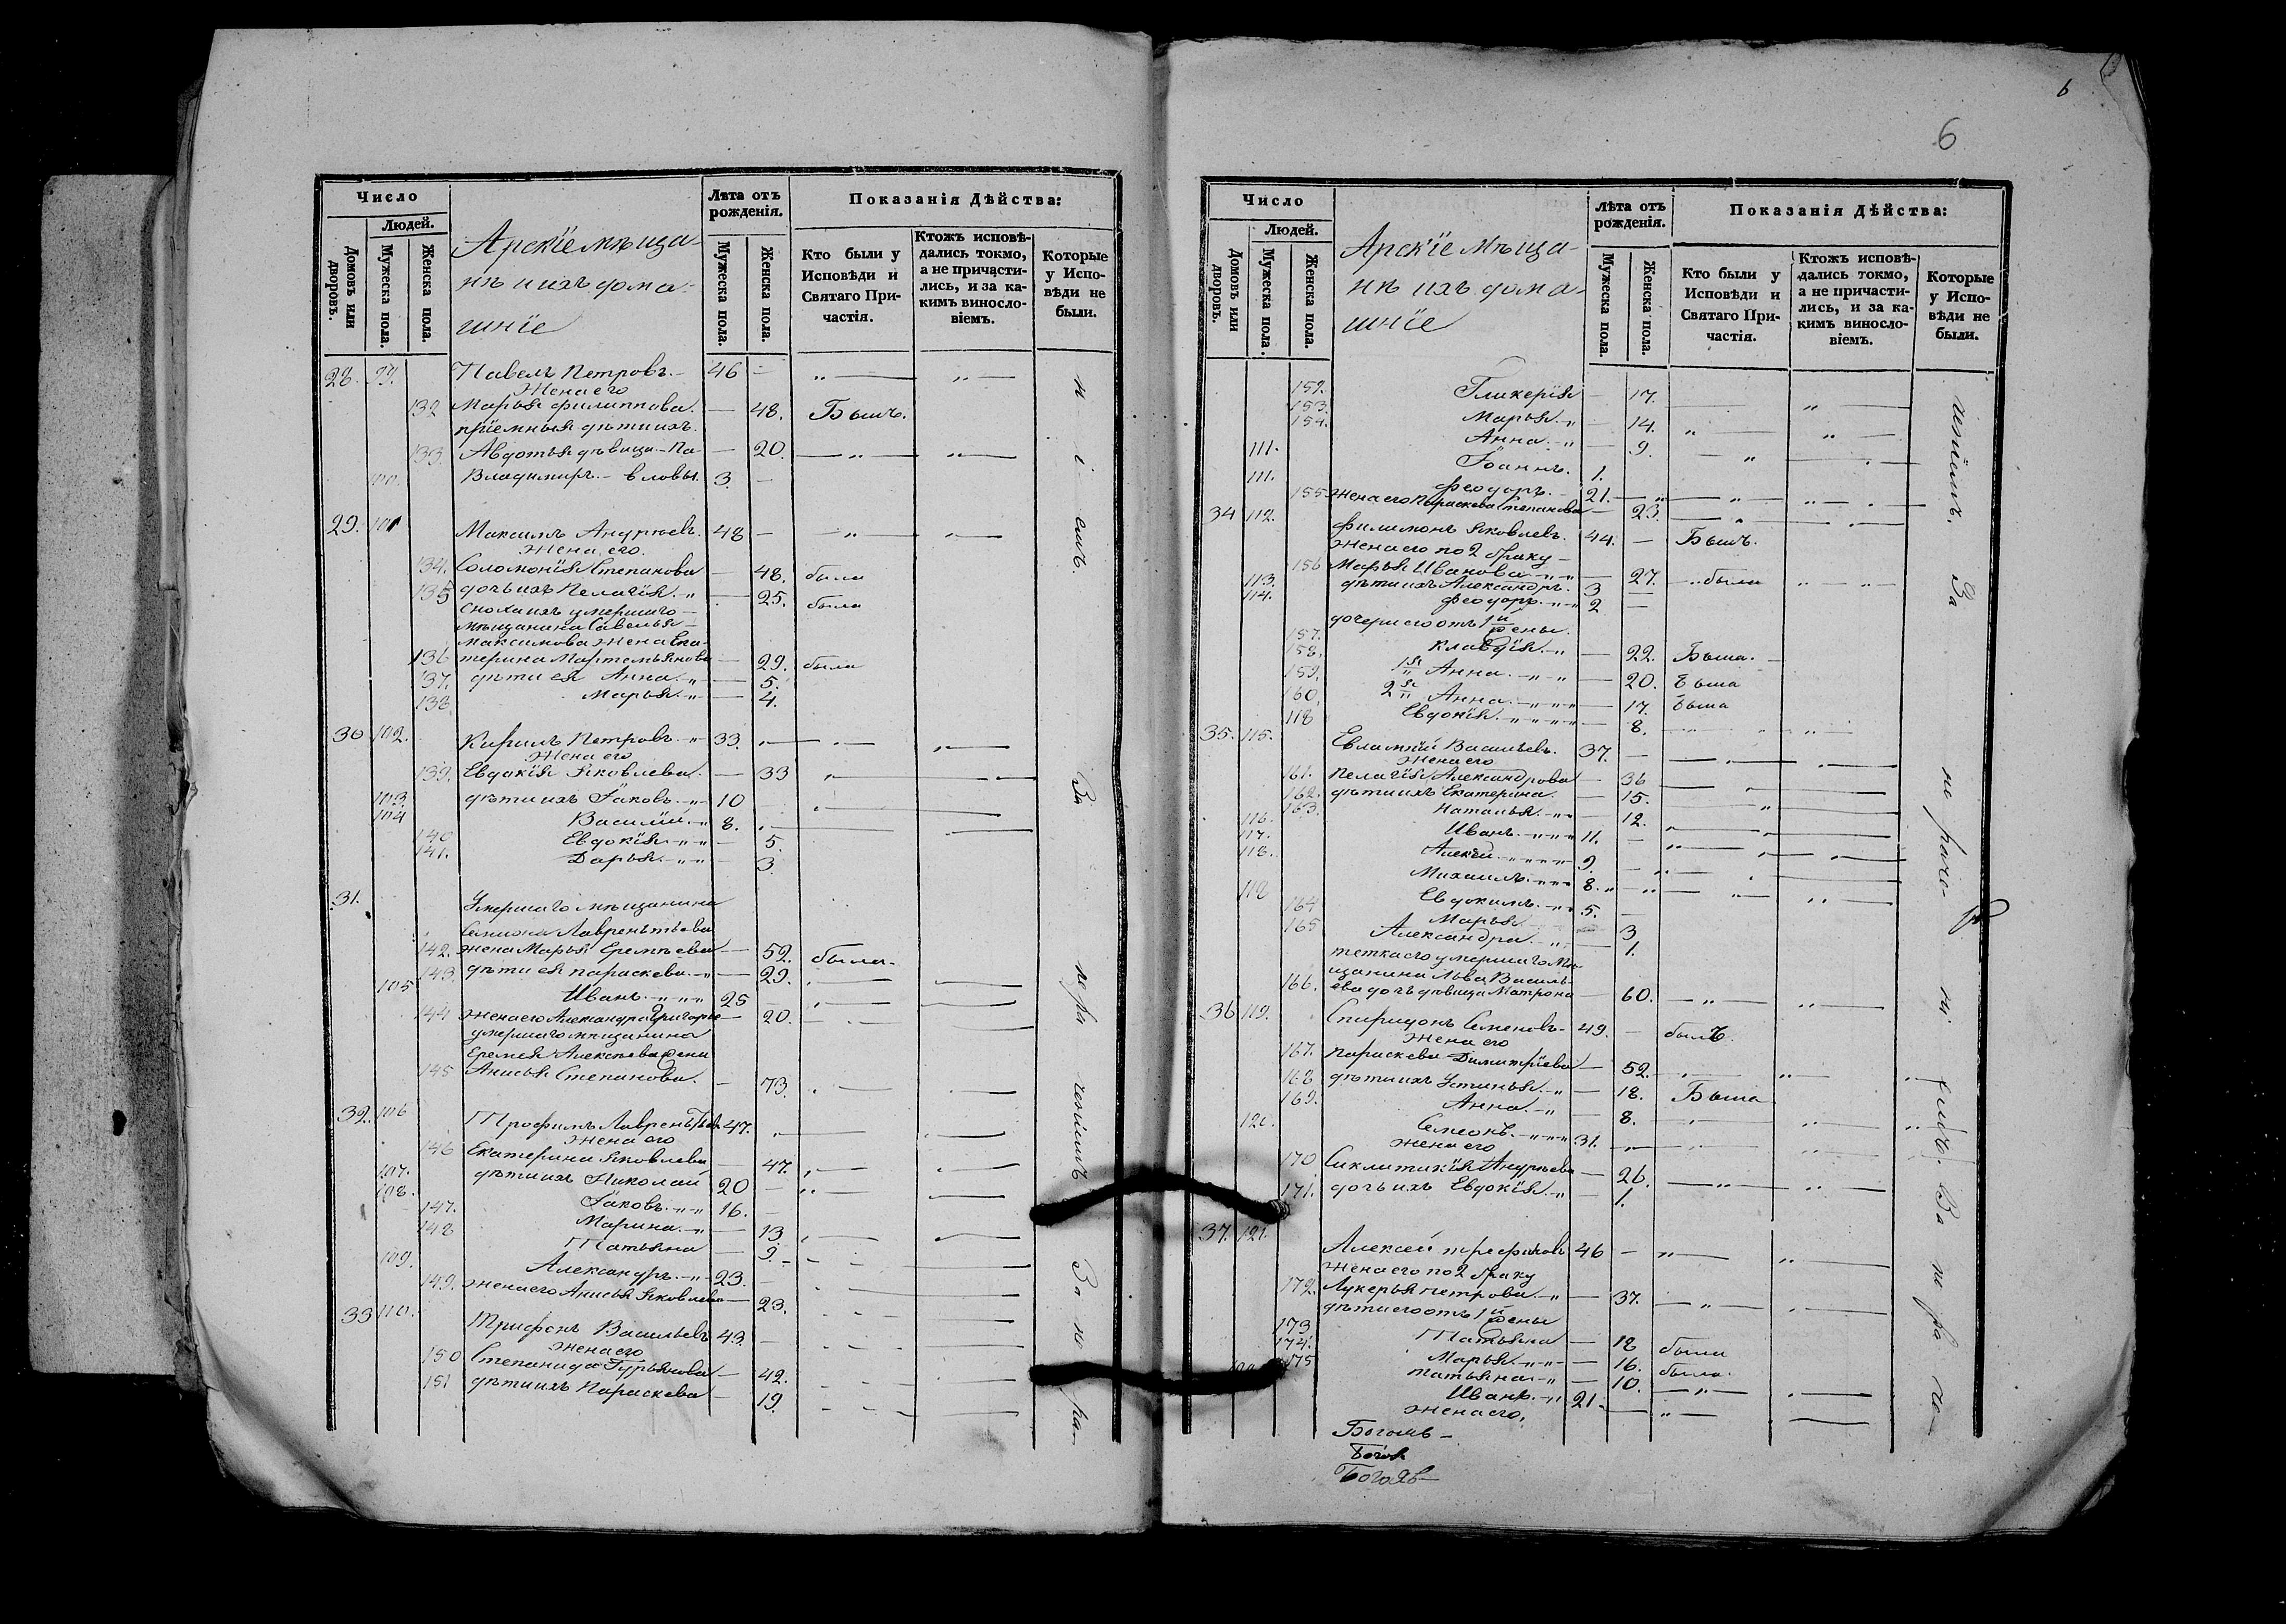 Число
Людей.
Домовъ или дворовъ.
Мужеска пола.
Женска пола.
Арскіе мѣща-
нѣ и ихъ дома-
шніе
Лѣта отъ рожденія.
Мужеска пола.
Женска пола.
Показанія Дѣйства:
Кто были у Исповѣди и Святаго При-частія.
Ктожъ исповѣ-дались токмо, а не причасти-лись, и за ка-кимъ виносло-віемъ.
Которые у Испо-вѣди не были.
28. 99. Павелъ Петровъ. 46
Жена его
132 Марья Филиппова. 48. Былъ.
пріемныя дѣти ихъ.
133. Авдотья дѣвица 20.
100. Владимиръ. 3.
29. 101 Максимъ Андреевъ. 48
Жена его.
134. Соломонія Степанова 48. была
135 дочь ихъ Пелагія 25. была
Сноха ихъ умершаго
мѣщанина Савелья
Максимова жена Ека-
136 терина Мартемьянова 29. была
137. дѣти ея Анна 5.
138. Марья 4.
30 102. Кирилъ Петровъ 33.
Жена его
139. Евдокія Яковлева. 33
103. дѣти ихъ Іаковъ 10
104 Василій 8.
140 Евдокія 5.
141. Дарья 3.
31. Умершаго мѣщанина
Симиона Лаврентьева
142. жена Марья Еремѣева 52. была
143. дѣти ея Параскева 29.
105 Иванъ 25
144 жена его Александра Григорье 20.
умершаго мѣщанина
Еремея Алексѣева жена
145 Анисья Степанова. 73.
32. 106 Трофимъ Лаврентьев 47.
Жена его
146 Екатерина Яковлева 47.
107. дѣти ихъ Николай 20
108. Іаковъ 16.
147. Марина 13
148 Татьяна 9.
109. Александръ 23.
149. жена его Анисья Яковлева 23.
33 110. Трифонъ Васильевъ 43.
жена его
150 Степанида Гурьянова 42.
151 дѣти ихъ Параскева 19.
6
6
Число
Людей.
Домовъ или дворовъ.
Мужеска пола.
Женска пола.
Арскіе мѣща-
нѣ ихъ дома-
шніе
Лѣта отъ рожденія.
Мужеска пола.
Женска пола.
Показанія Дѣйства:
Кто были у Исповѣди и Святаго При-частія.
Ктожъ исповѣ-дались токмо, а не причасти-лись, и за ка-кимъ виносло-віемъ.
Которые у Испо-вѣди не были.
152. Гликерія 17.
153. Марья 14.
154. Анна 9.
111. Іоаннъ. 1.
111. Феодоръ. 21.
155 жена его Параскева Степанова 23.
34 112. Филимонъ Яковлевъ. 44. Былъ.
жена его по 2 браку
156 Марья Иванова 27. была
113. дѣти ихъ Александръ. 3
114. Феодоръ 2
дочери его отъ 1й жены.
157. Клавдія 22. Была.
158. 1я Анна 20. Была
159. 2я Анна 17. Была
160. Евдокія 8.
118
35. 115. Евлампій Васильевъ. 37.
Жена его
161. Пелагія Александрова 36
162. дѣти ихъ Екатерина. 15.
163. Наталья 12.
116. Иванъ 11.
117. Алексѣй 9.
118. Михаилъ 8.
118 Евдокимъ 5.
164 Марья 3
165 Александра 1.
тетка его умершаго мѣ-
щанина Льва Василь-
166. ева дочь дѣвица Матрона 60.
36 119. Спиридонъ Семеновъ 49. былъ.
Жена его
167. Параскева Димитріева 52.
168 дѣти ихъ Устинья 18. Была
169. Анна 8.
120. Симеонъ 31.
Жена его
170. Сиклитикія Андреева 26.
171. дочь ихъ Евдокія 1.
37. 121. Алексей Трофимов 46
жена его по 2 браку
172. Лукерья Петрова 37.
дѣти его отъ 1й жены
173 Татьяна 18 была
174. Марья 16. была
175 Татьяна 10.
Иванъ 21.
жена его.
Богояв